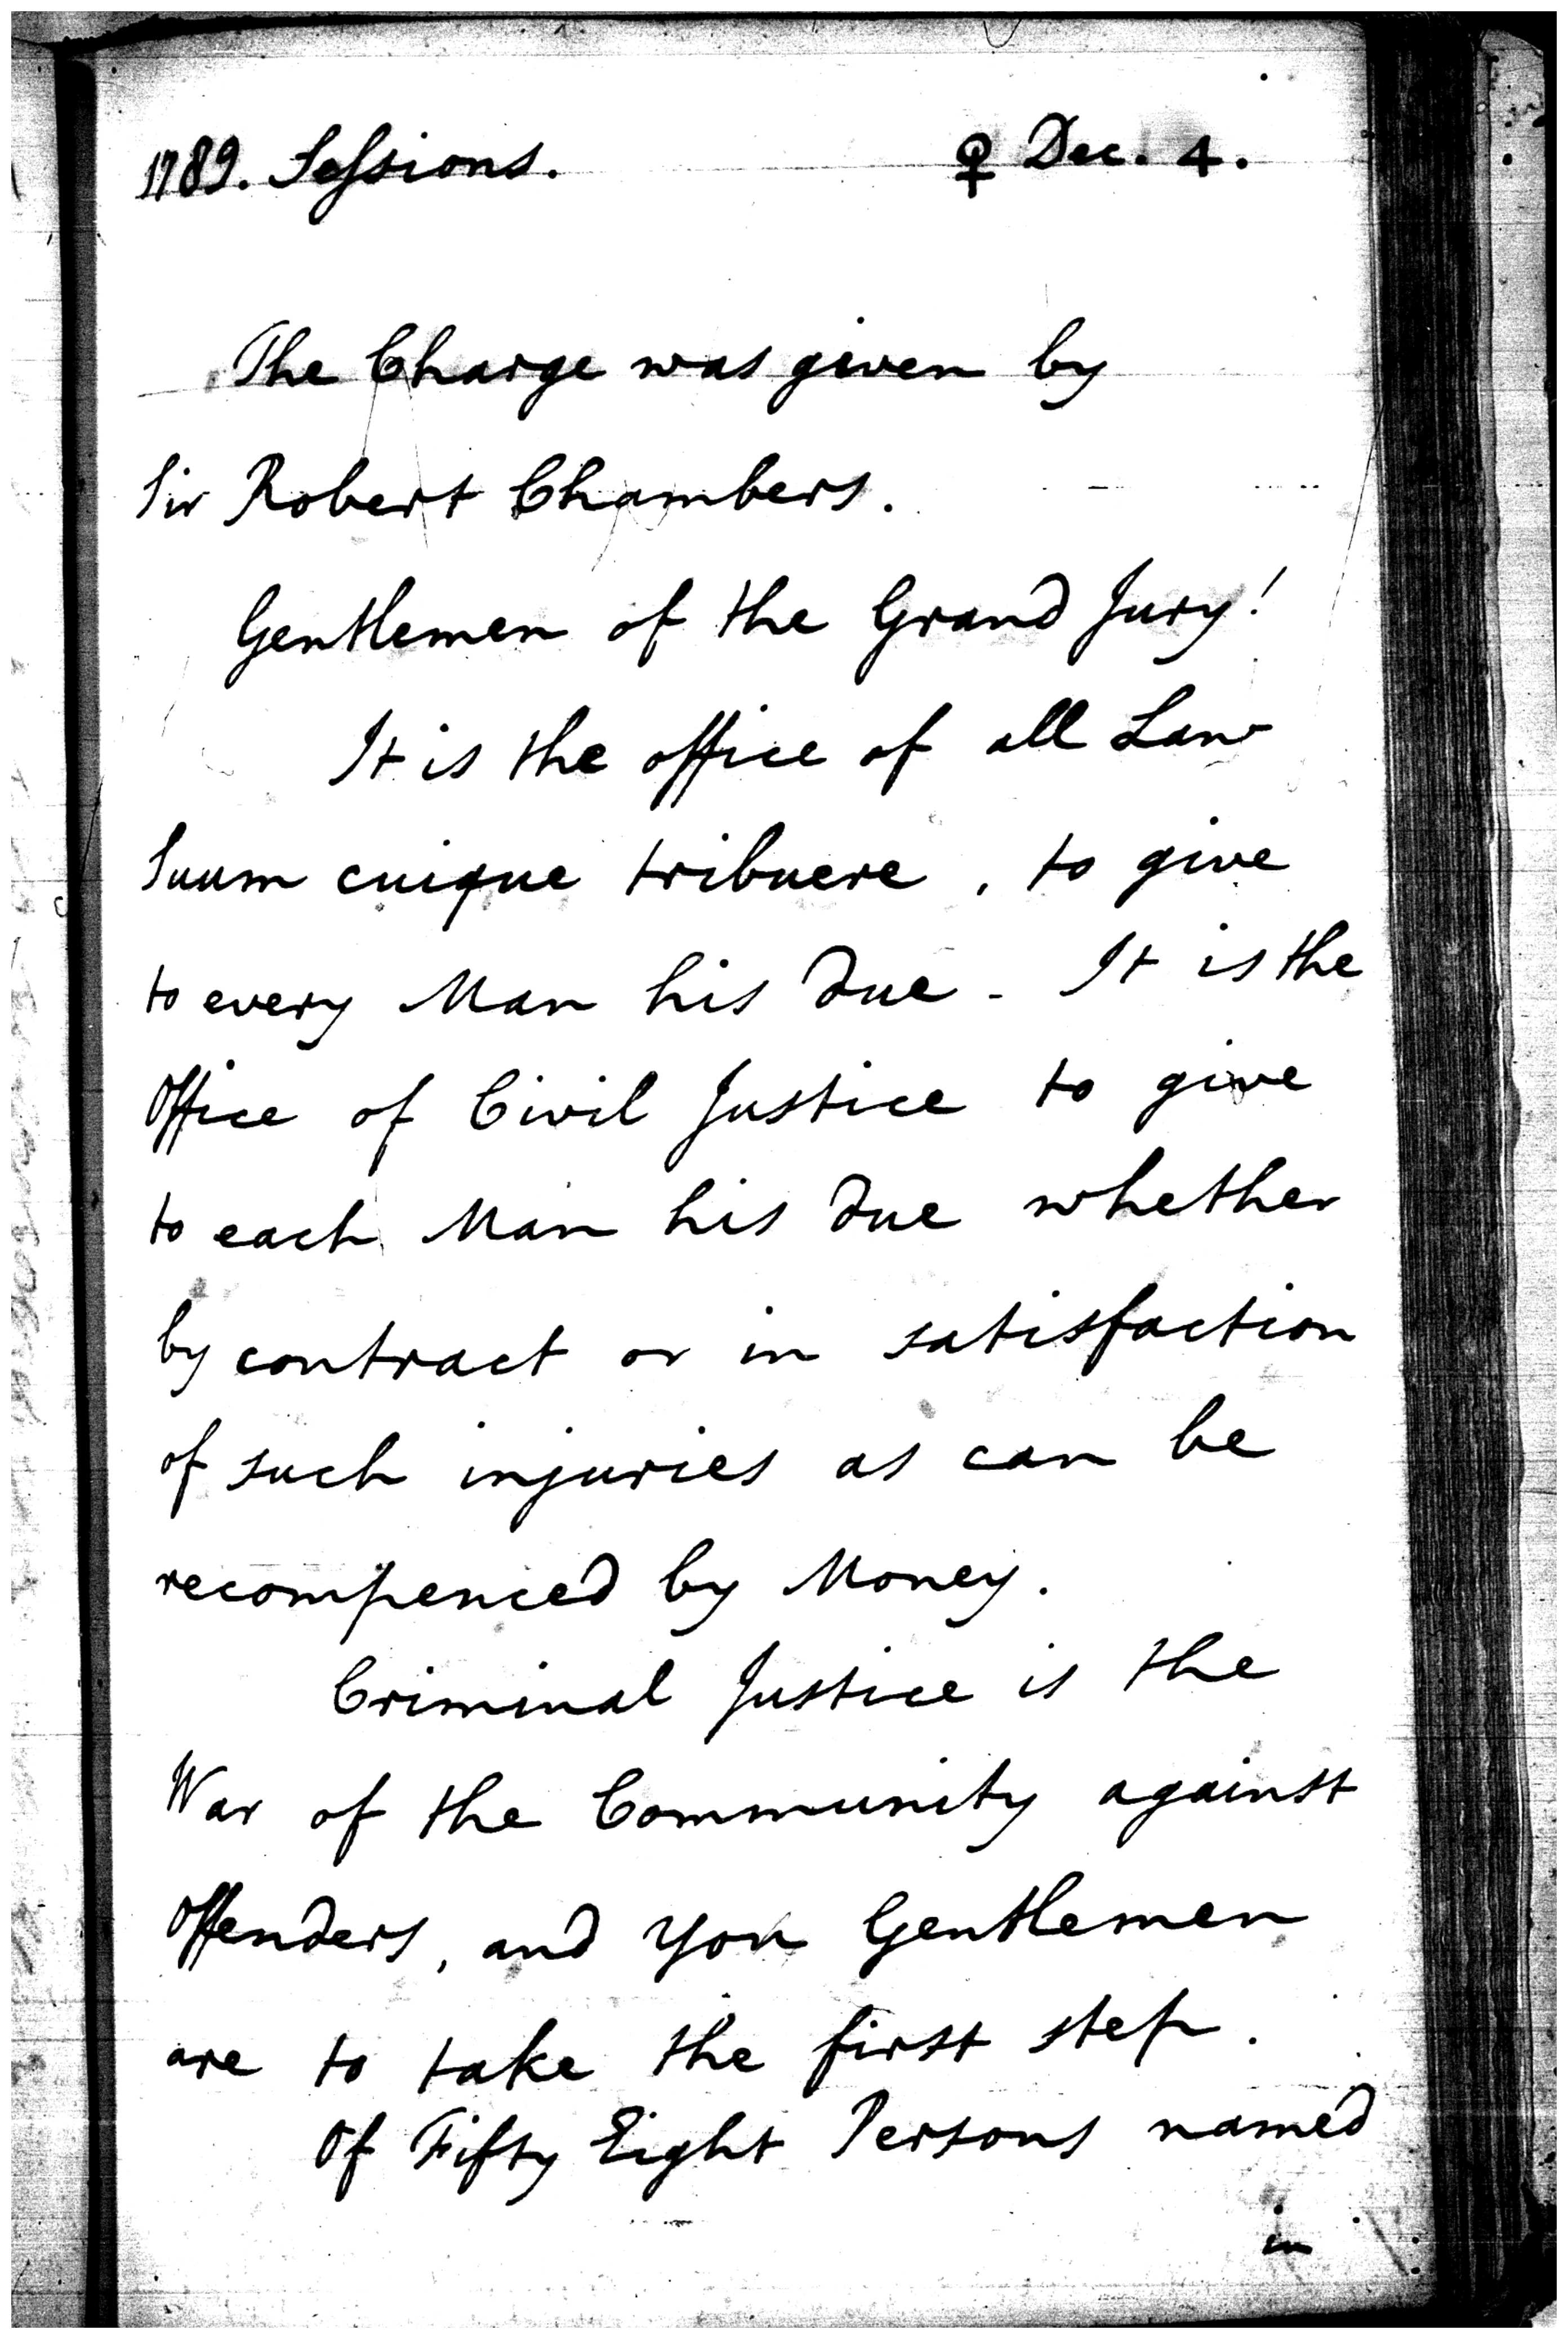 1789. Sessions. ♀ Dec. 4.
The Charge was given by
Sir Robert Chambers.
Gentlemen of the Grand Jury!
It is the office of all Law
Suum cuique tribuere, to give
to every Man his due - It is the
Office of Civil Justice to give
to each Man his due whether
by contract or in satisfaction
of such injuries as can be
recompenced by Money.
Criminal Justice is the
War of the Community against
Offenders, and you Gentlemen
are to take the first step.
Of Fifty Eight Persons named
in